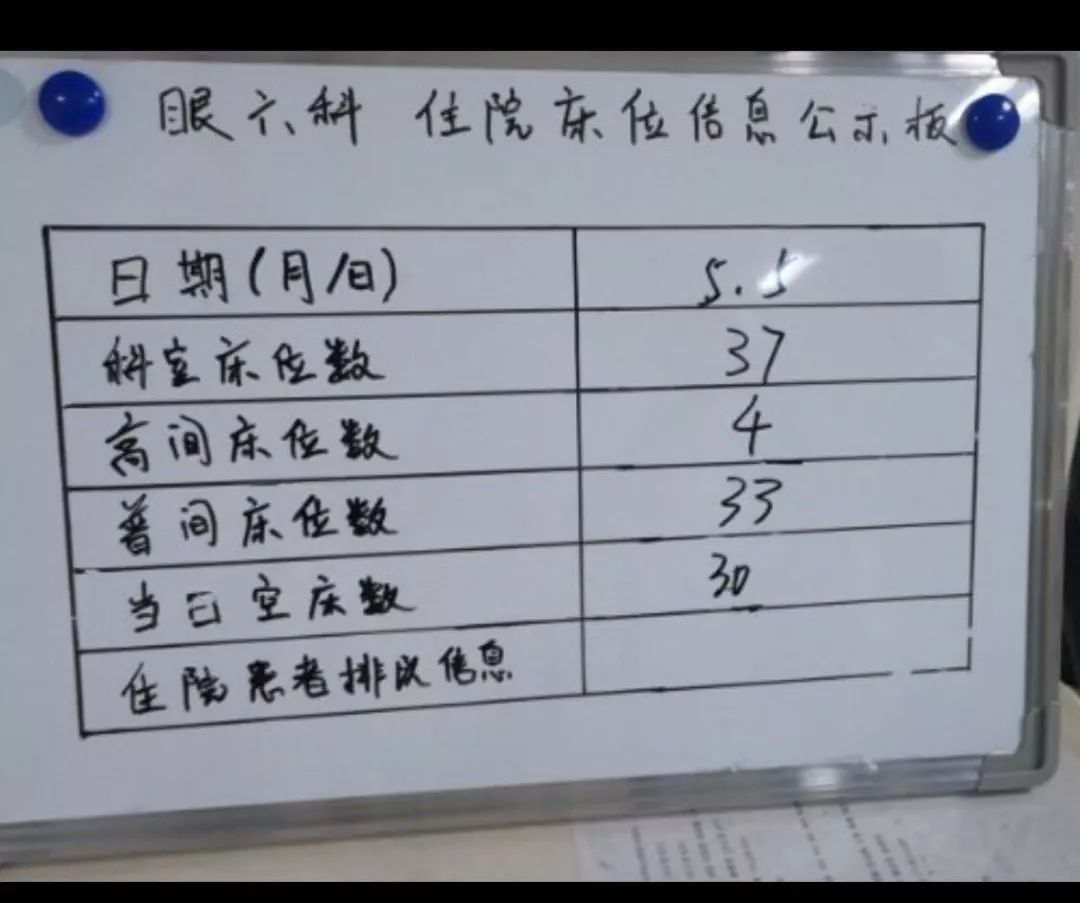 眼六科 住院床位信息公示板
日期(月/日) 5.5
科室床位数 37
高间床位数 4
普间床位数 33
当日空床数 30
住院患者排队信息